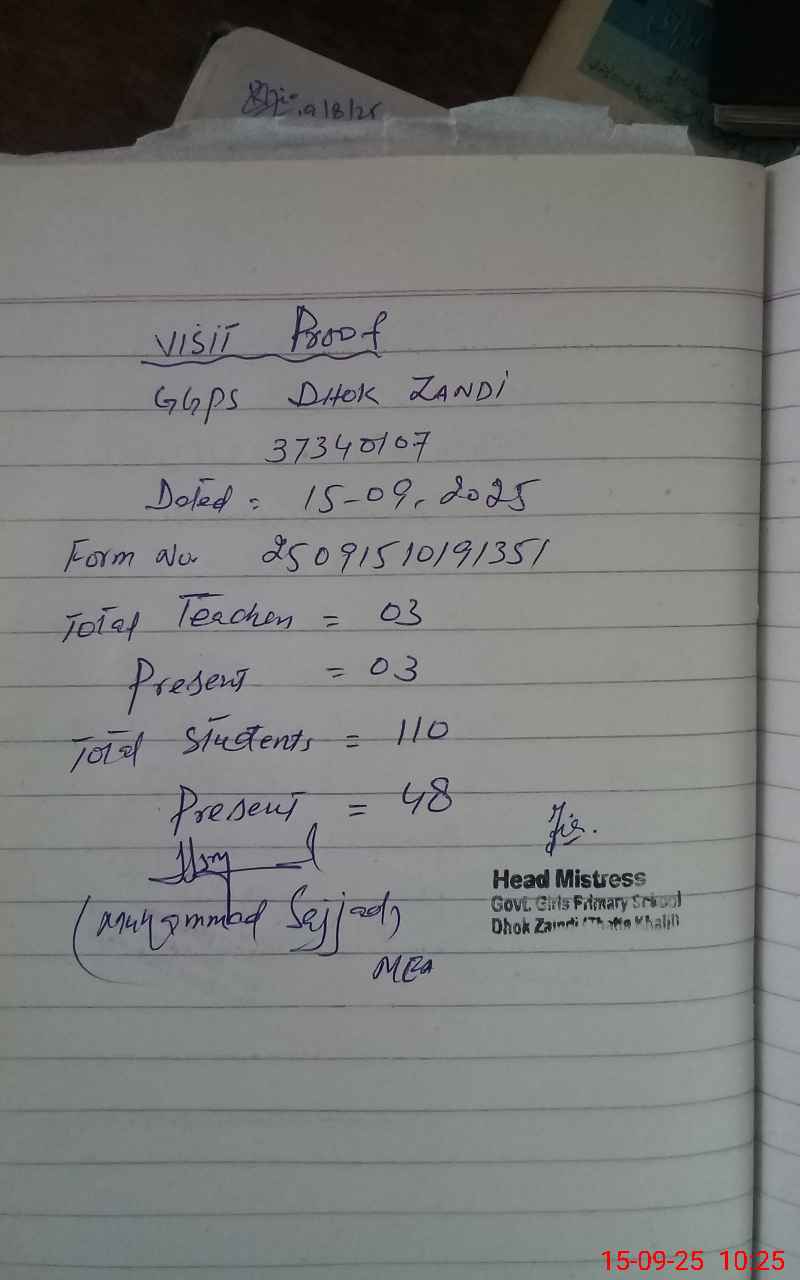 9/8/25
VISIT Proof
GGPS DHOK ZANDI
37340107
Dated = 15-09-2025
Form No. 25091510191351
Total Teachers = 03
Present = 03
Total Students = 110
Present = 48
(Muhammad Sajjad)
MEA
Head Mistress
Govt. Girls Primary School
Dhok Zandi (Thatta Khalil)
15-09-25 10:25